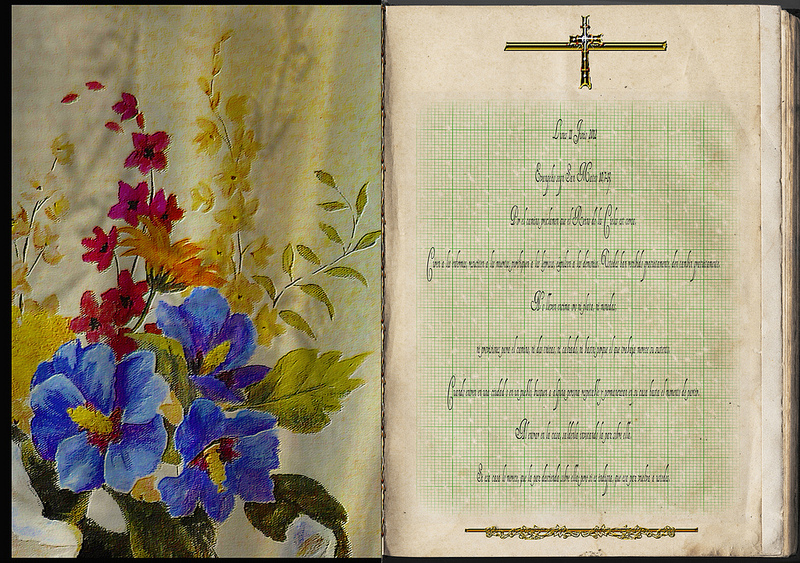 Lunes 11 Junio 2012
Evangelio según San Mateo 10,7-13.
Por el camino, proclamen que el Reino de los Cielos está cerca.
Curen a los enfermos, resuciten a los muertos, purifiquen a los leprosos, expulsen a los demonios. Ustedes han recibido gratuitamente, den también gratuitamente.
No lleven encima oro ni plata, ni monedas,
ni provisiones para el camino, ni dos túnicas, ni calzado, ni bastón; porque el que trabaja merece su sustento.
Cuando entren en una ciudad o en un pueblo, busquen a alguna persona respetable y permanezcan en su casa hasta el momento de partir.
Al entrar en la casa, salúdenla invocando la paz sobre ella.
Si esa casa lo merece, que la paz descienda sobre ella; pero si es indigna, que esa paz vuelva a ustedes.